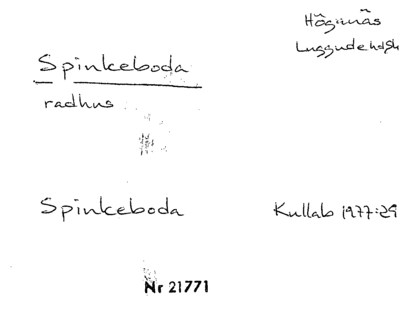 Höganäs
Luggude hd
Spinkeboda
radhus
Spinkeboda Kullab 1977:29
Nr 21771